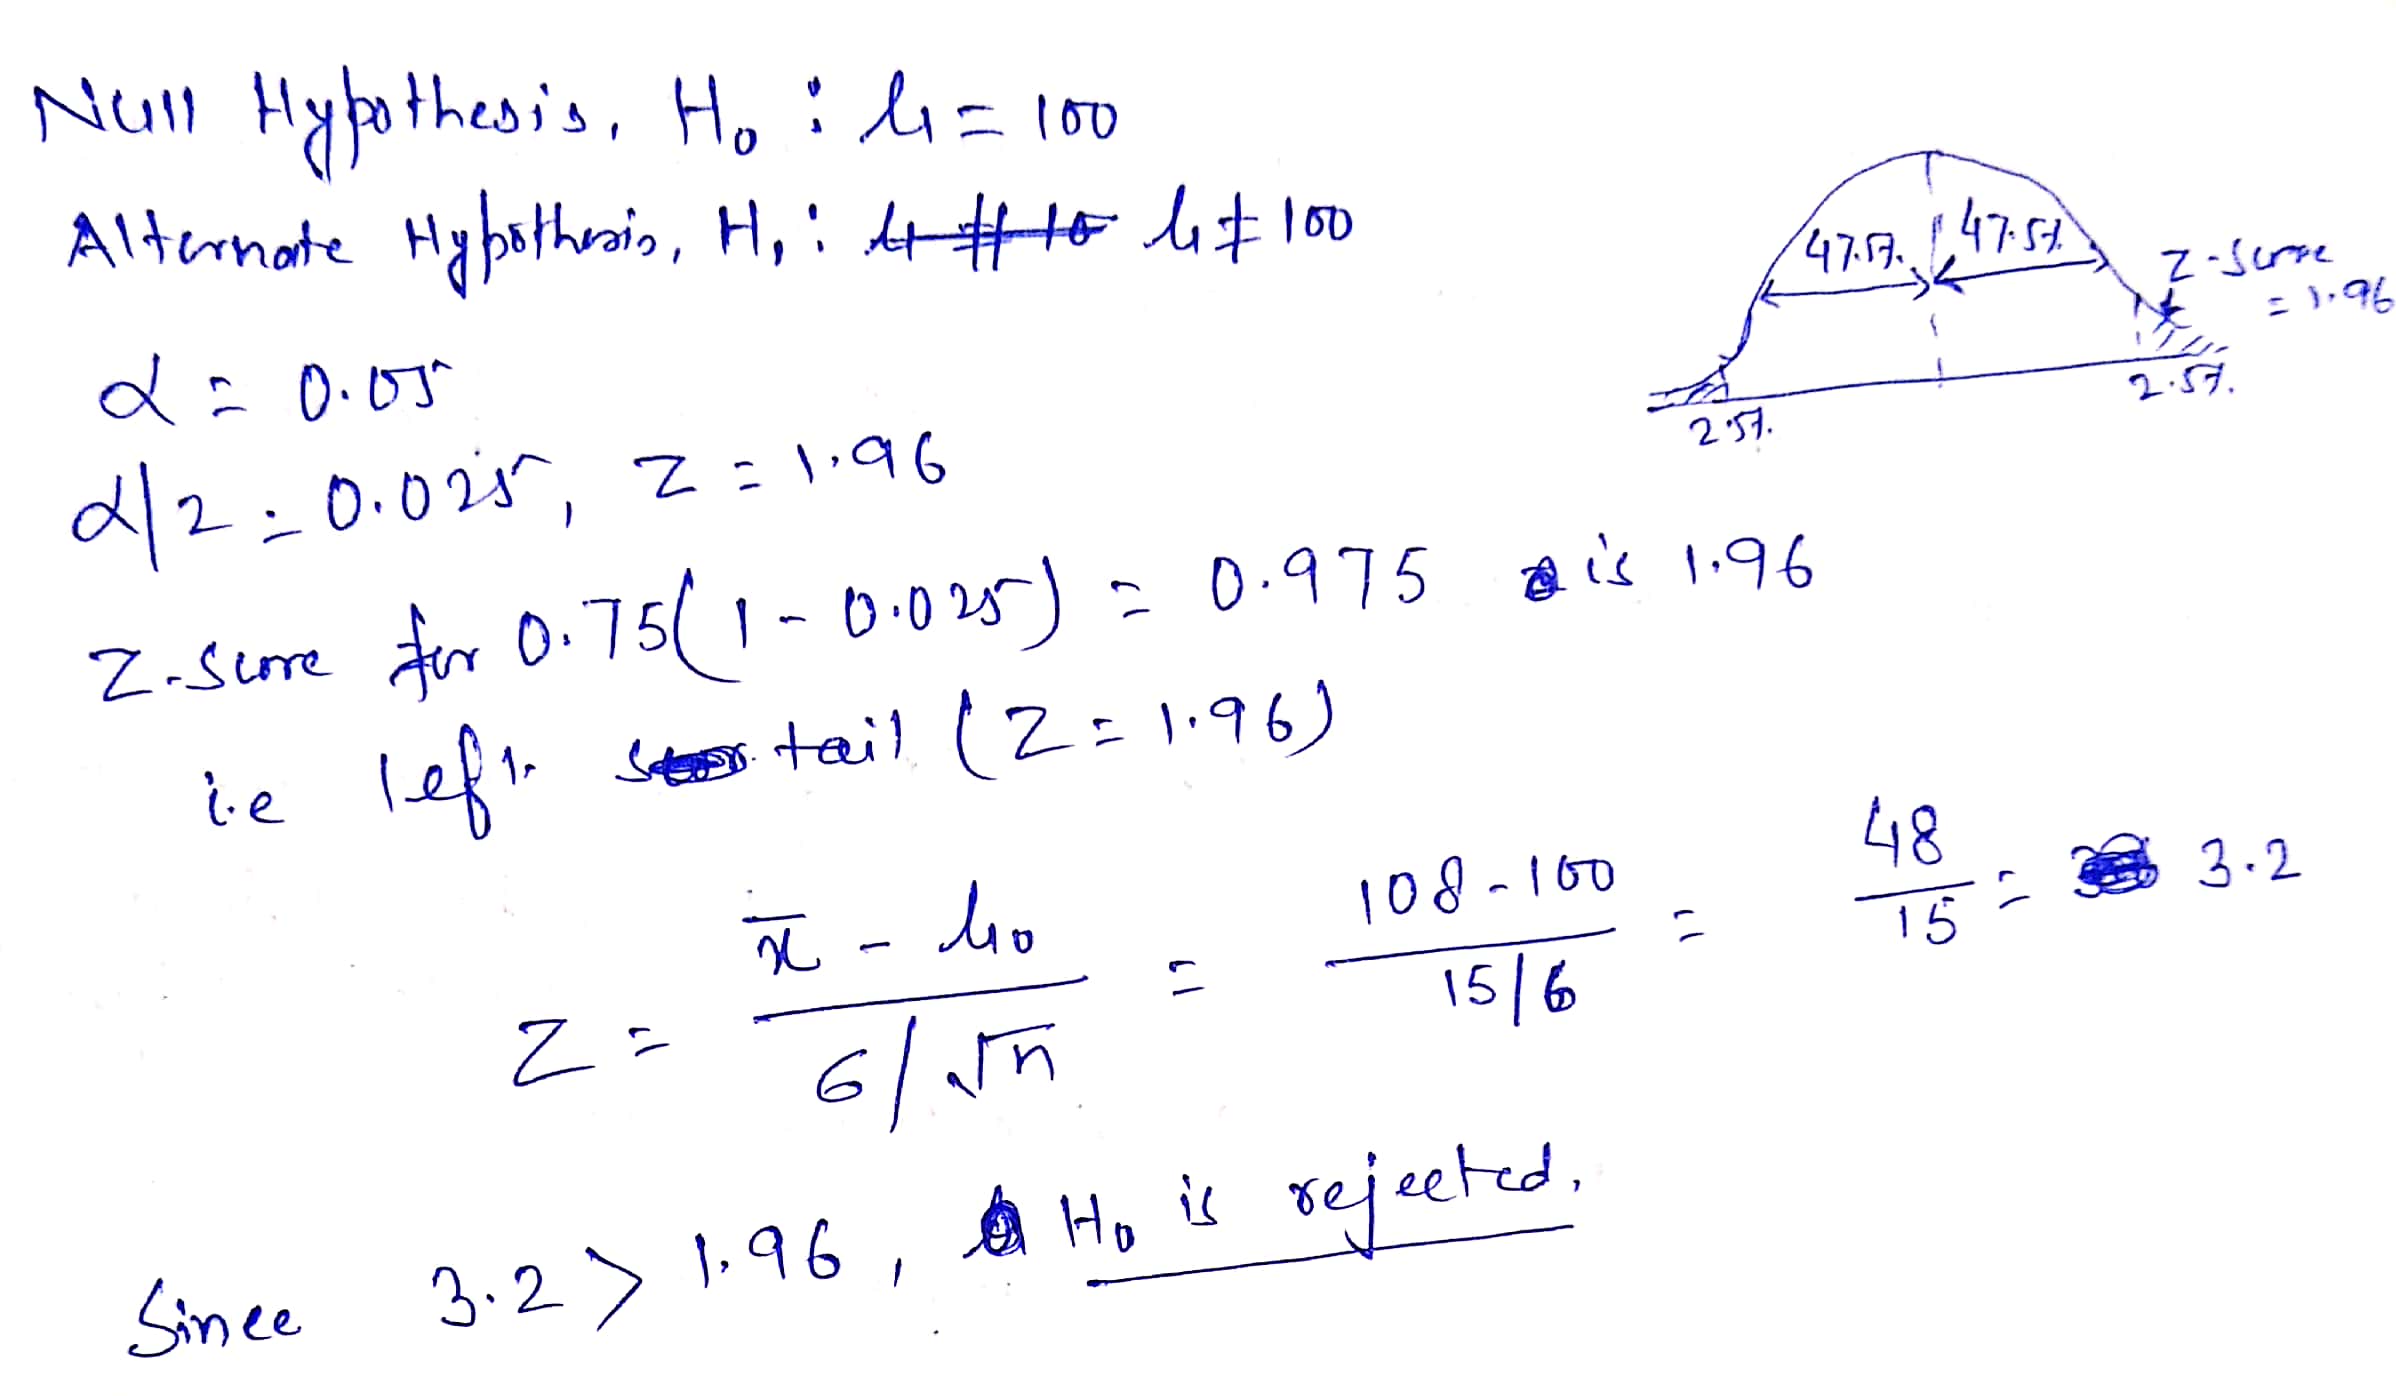 Null Hypothesis, H₀ : μ = 100
Alternate Hypothesis, H₁ : μ ≠ 100
47.5% 47.5%
Z-score
= 1.96
2.5%
2.5%
α = 0.05
α/2 = 0.025, Z = 1.96
Z-score for 0.75(1 - 0.025) = 0.975 is 1.96
i.e left tail (Z = 1.96)
Z = (x̄ - μ₀) / (σ/√n) = (108 - 100) / (15/6) = 48/15 = 3.2
Since 3.2 > 1.96, H₀ is rejected.